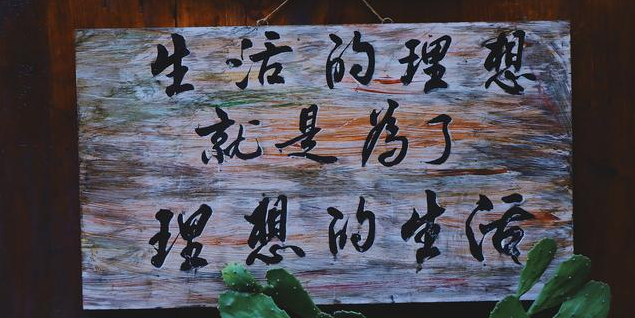 生活的理想
就是為了
理想的生活